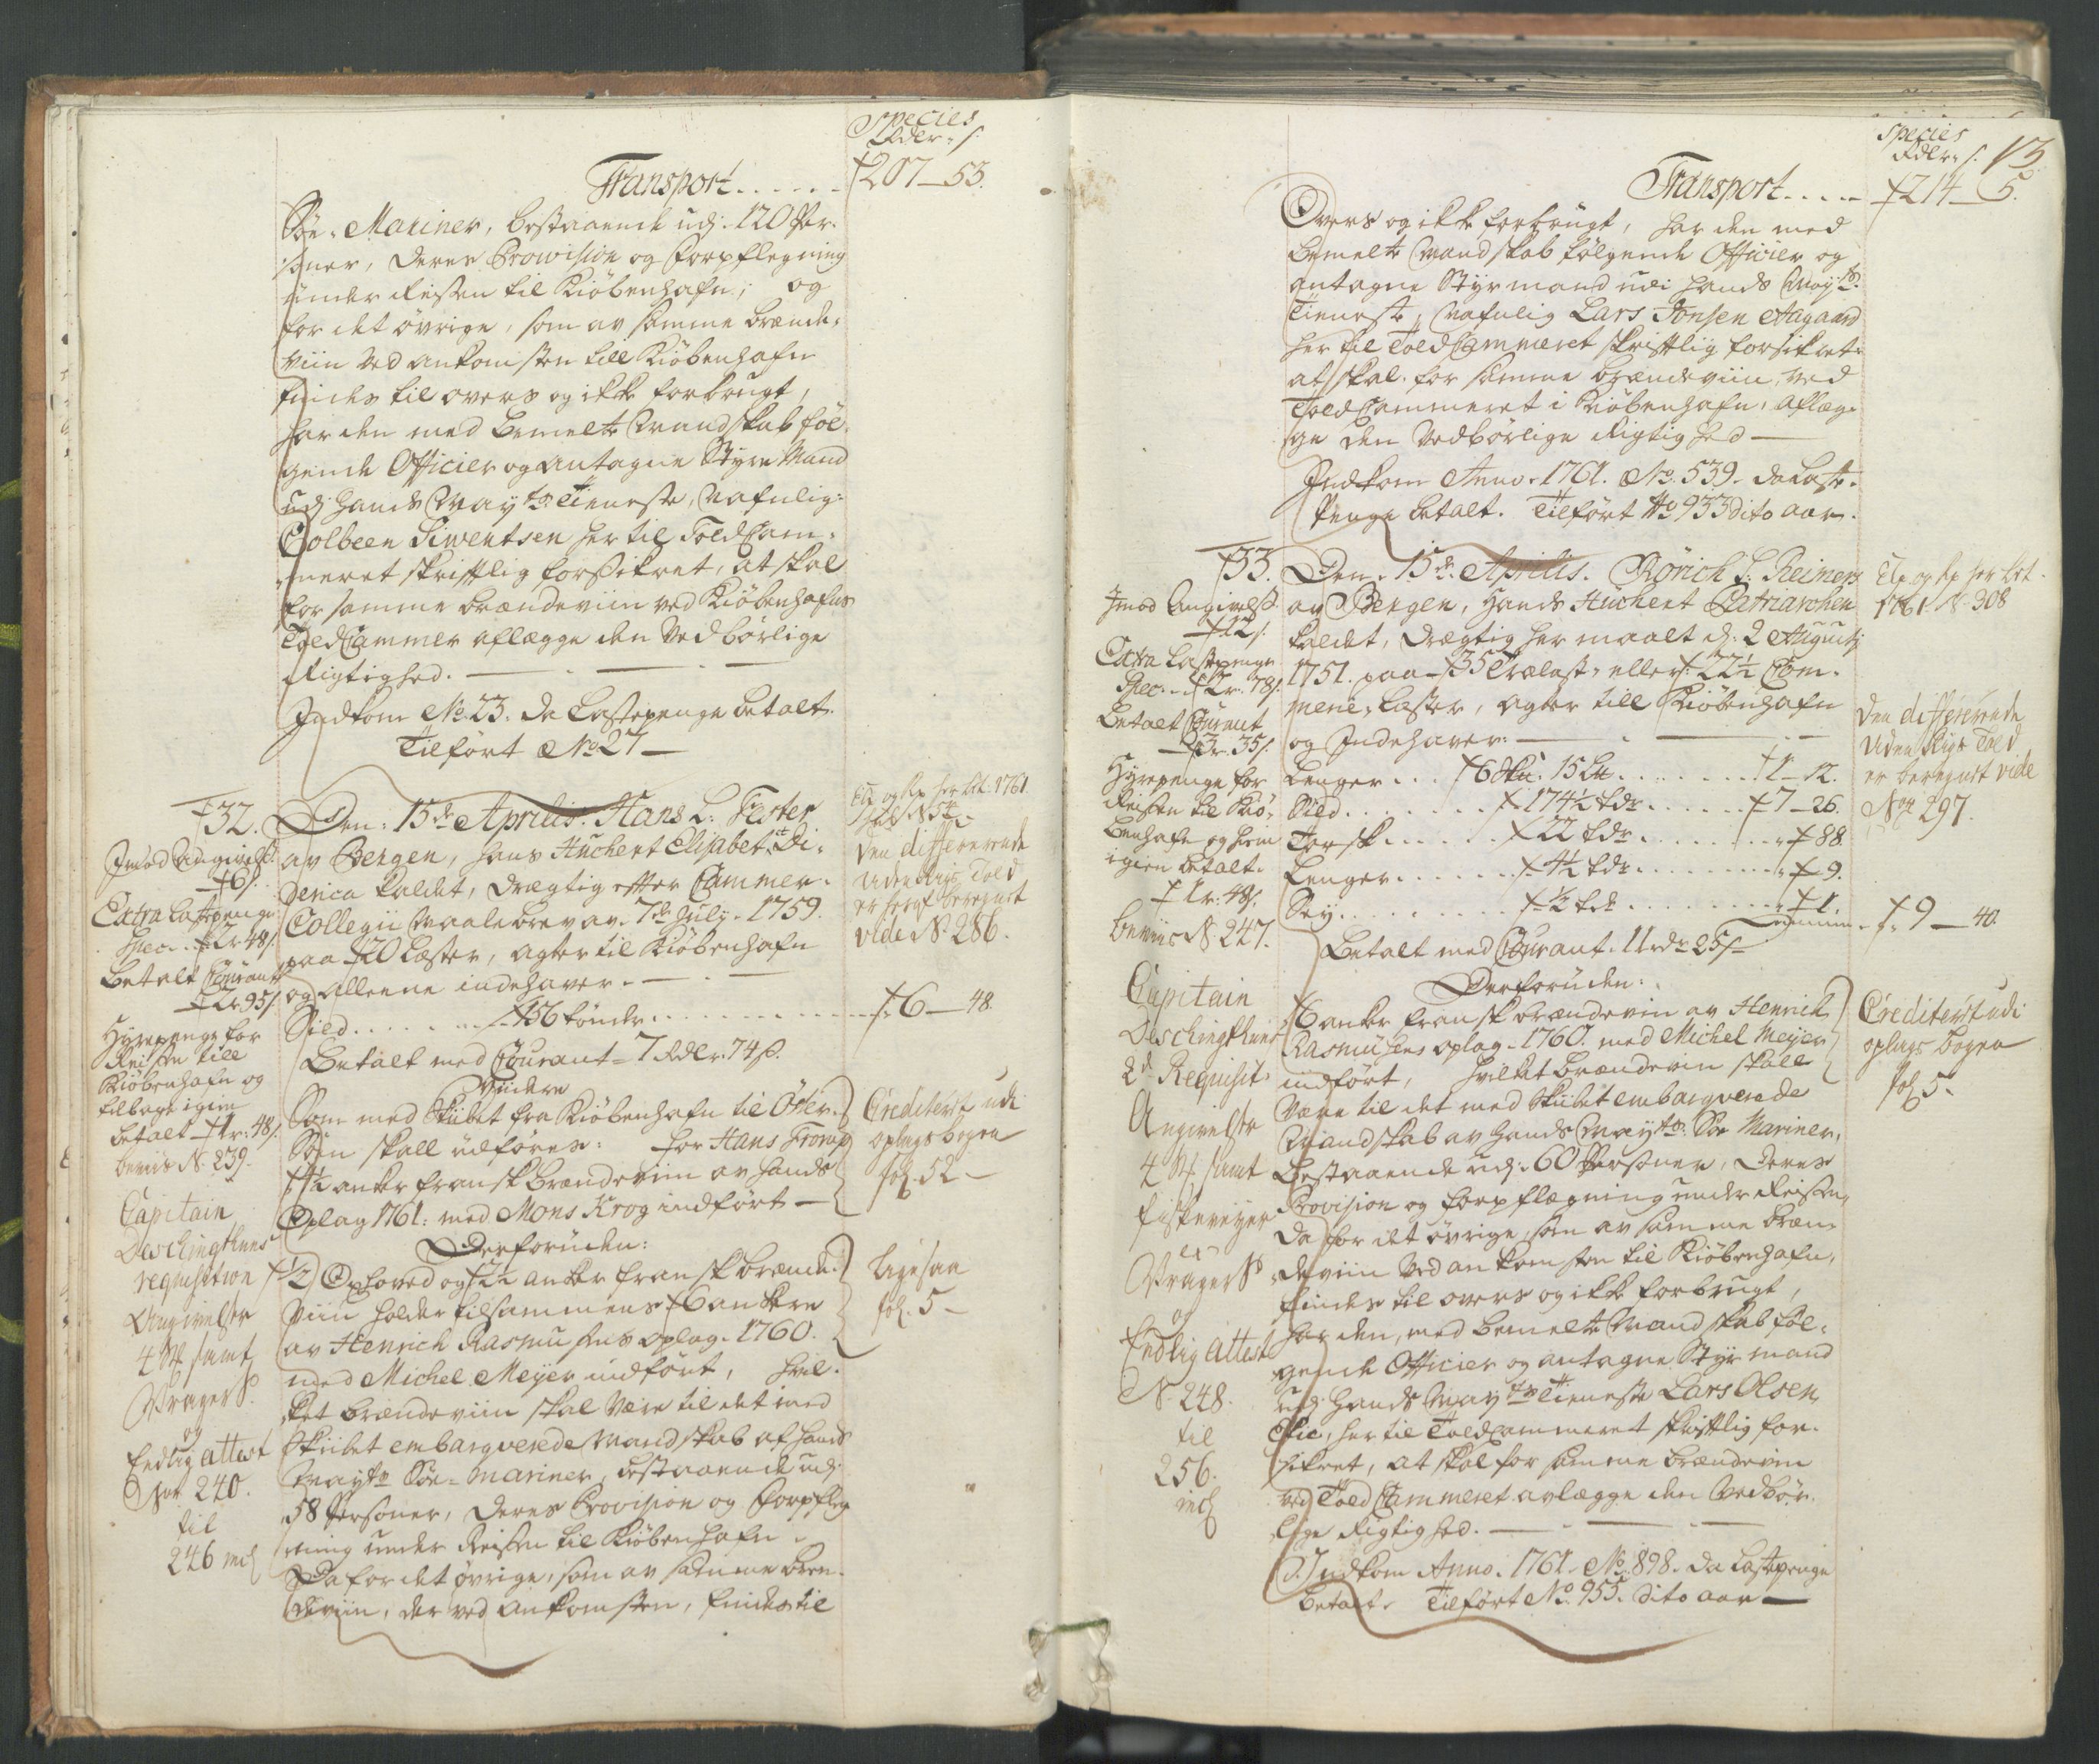 Species
Rdlr. s.
Transport . . . . . ƚ207 – 53.
Söe-Mariner, bestaaende udj: 120 Per-
soner, deres Provision og Forpflegning
under Reissen til Kiöbenhafn; og
for det övrige, som av samme brænde-
viin ved ankomsten till Kiöbenhafn
findes til overs og ikke forbrugt,
har den med bemelte Mandskab föl-
gende Officier og antagne Styre Mand
udj hands Mayts Tieneste, Nafnlig:
Colbeen Siwentsen her til Told Cam-
meret skriftlig forsikret, at skal
for samme brændeviin ved Kiöbenhafns
Told Cammer aflægge den Vedbörlige
Rigtighed. –
Indkom No 23. da Lastepenge betalt.
Tilfört No 27 –
32. Den: 15de Aprilis. Hans L: Fester
av Bergen, hans Huchert Elisabet Di-
derica kaldet, drægtig efter Cammer-
Collegii Maalebrev av 7de July 1759.
paa 20 Læster, agter til Kiöbenhafn
og alleene indehaver. –
Sild . . . . . . 156 tönder . . . . . . . . . 6 – 48.
Betalt med Courant = 7 Rdlr. 74 s.
Viidere
Som med Skibet fra Kiöbenhafn til Öster-
Söen skall udföres: for Hans Frorup
4½ anker fransk brændeviin av hands
Oplag 1761: med Mons Krog indfört –
Derforuden:
½ Oxhoved og 2½ anker fransk brænde-
viin holder tilsammens 6 ankere
av Henrich Rasmusens oplag 1760.
med Michel Meyer indfört, hvil-
ket brændeviin skal være til det med
Skibet embarqverede Mandskab af hans
Mayts Söe-mariner, bestaaende udj
58 Personer, deres Provision og Forpfleg-
ning under Reissen til Kiöbenhafn
Da for det övrige, som av samme bren-
deviin, der ved ankomsten, findes til
Imod Angivelse
6 s.
Extra Lastpenge
Spec. 2 r. 48 s.
betalt Courant
2 r. 95 s.
Hyrepenge for
Reissen till
Kiöbenhafn og
tilbage igien
betalt 1 r. 48 s.
beviis N. 239.
Capitain
Deschingthuns
requisition
Angivelse
4 St. samt
Vrager S.
og
Endlig attest
Nor 240.
til
246 incl
Elp og Rp her bet. 1761
N 54
den differerende
Udenrigs Told
er heraf beregnet
vide N. 286.
Crediteret udi
oplags bogen
fol. 52 –
Ligesaa
fol. 5 –
Species
Rdlr. s. 13.
Transport . . . . – 214 – 5.
Overs og ikke forbrugt, har den med
bemelte Mandskab følgende Officier og
antagne Styrmand udi hands Mayts
Tieneste, Nafnlig Lars Jonsen Aagaard
her til Told Cammeret skriftlig forsikret
at skal for samme brændeviin, ved
Told Cammeret i Kiöbenhafn, aflæg-
ge den Vedbörlige Rigtighed –
Indkom Anno 1761. No. 539. da Laste-
Penge betalt. Tilfört No 933 dito aar.
33. Den: 15de Aprilis. Rörich S. Reimers
av Bergen, Hands Huchert Patriarchen
kaldet, drægtig her maalt d. 2 Augustj
1751. paa 35 Trælast, eller 22½ Com-
merce-Læster, agter till Kiöbenhafn
og Indehaver: –
Lenger . . . 6 Sku. 15 Lt. . . . . . . 1 – 12.
Sild . . . . . . 174½ tdr. . . . . 7 – 26.
Torsk . . . . . 22 tdr. . . . . . . . 88.
Lenger . . . . . . 4½ tdr. . . . . . . . 9.
Sey . . . . . . . . ½ td. . . . . . . . . 1.
9 – 40.
Betalt med Courant. 11 rdr 25 s –
Derforuden:
6 anker fransk brændevin av Henrich
Rasmusens oplag – 1760. med Michel Meyer
indfört, hvilket brændevin skall
være til det med Skibet embarqverede
Mandskab av hands Mayts Söe Mariner,
bestaaende udj 60 Personer, deres
Provision og forpflægning under Reissen,
da for det övrige, som av samme bræn-
deviin ved ankomsten til Kiöbenhafn,
findes til overs og ikke forbrugt,
har den, med bemelte Mandskab föl-
gende Officier og antagne Styrmand
udj hands Mayts Tieneste Lars Olsen
her til Told Cammeret skriftlig for-
sikret, at skal for samme brændeviin
ved Told Cammeret avlægge den Vedbör-
lige Rigtighed. –
Indkom Anno 1761. No. 898. da Lastpenge
betalt. Tilfört No. 955. dito aar –
Imod Angivelse
12 s.
Extra Lastpenge
Spec. 2 r. 78 s.
betalt Courant
3 r. 35 s.
Hyrepenge for
Reissen til Kiö-
benhafn og hiem
igien betalt.
1 r. 48 s.
beviis N. 247.
Capitain
Deschingthuns
2d Requisit:
Angivelse
4 St. samt
Vrager S.
og
Endlig attest
N. 248.
til
256.
incl
Elp og Rp her bet.
1761 N. 308
den differerende
Udenrigs Told
er beregnet vide
Nor 297.
Crediteret udi
oplags bogen
fol 5 –